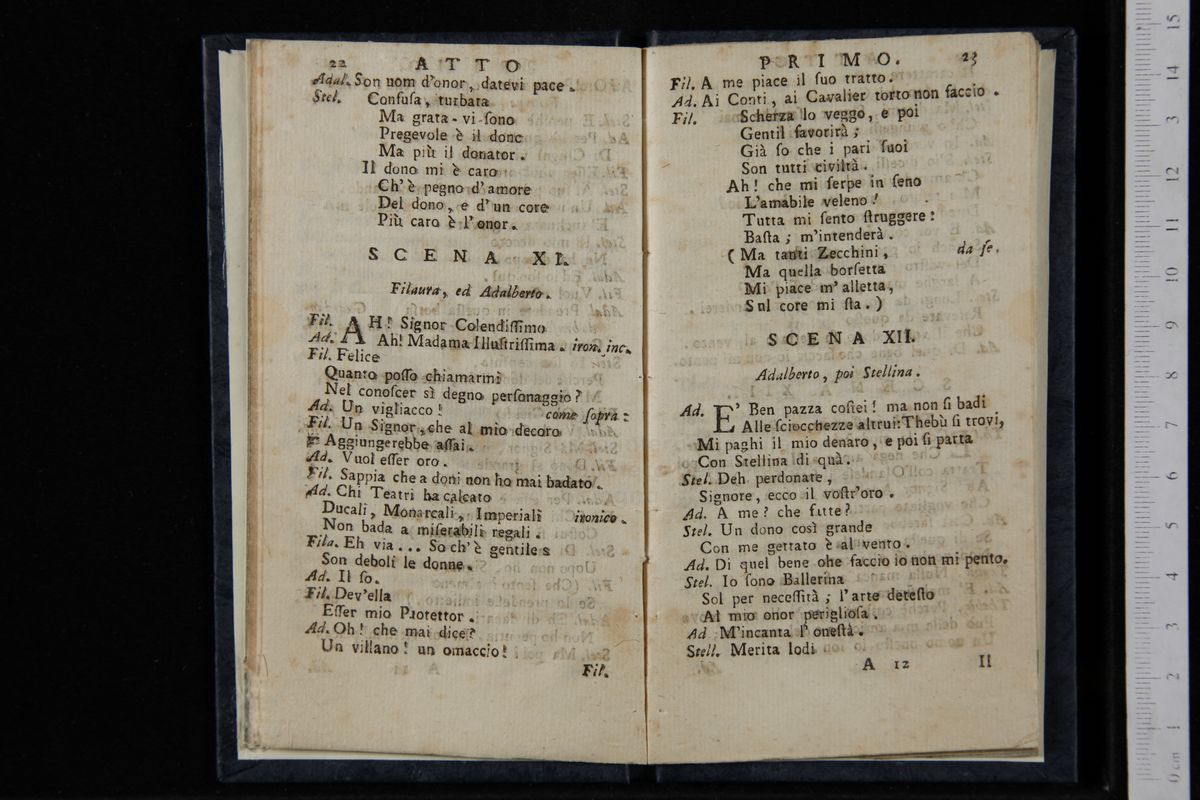 22 ATTO
Adal. Son uom d'onor, datevi pace.
Stel. Confuſa, turbata
Ma grata-vi-ſono
Pregevole è il dono
Ma più il donator.
Il dono mi è caro
Ch'è pegno d'amore
Del dono, e d'un core
Più caro è l'onor.
SCENA XI.
Filaura, ed Adalberto.
Fil. AH! Signor Colendiſſimo
Ad. Ah! Madama Illuſtriſſima. iron. inc.
Fil. Felice
Quanto poſſo chiamarmi
Nel conoſcer sì degno perſonaggio?
Ad. Un vigliacco! come ſopra:
Fil. Un Signor, che al mio decoro
Aggiungerebbe aſſai.
Ad. Vuol eſſer oro.
Fil. Sappia che a doni non ho mai badato.
Ad. Chi Teatri ha calcato
Ducali, Monarcali, Imperiali ironico.
Non bada a miſerabili regali.
Fila. Eh via... So ch'è gentile s
Son deboli le donne.
Ad. Il ſo.
Fil. Dev'ella
Eſſer mio Protettor.
Ad. Oh! che mai dice?
Un villano! un omaccio!
Fil.
PRIMO. 23
Fil. A me piace il ſuo tratto.
Ad. Ai Conti, ai Cavalier torto non faccio.
Fil. Scherza lo veggo, e poi
Gentil favorirà;
Già ſo che i pari ſuoi
Son tutti civiltà.
Ah! che mi ſerpe in ſeno
L'amabile veleno!
Tutta mi ſento ſtruggere:
Baſta; m'intenderà.
(Ma tanti Zecchini, da ſe.
Ma quella borſetta
Mi piace m'alletta,
Snl core mi ſta.)
SCENA XII.
Adalberto, poi Stellina.
Ad. E' Ben pazza coſtei! ma non ſi badi
Alle ſciocchezze altrui: Thebù ſi trovi,
Mi paghi il mio denaro, e poi ſi parta
Con Stellina di quà.
Stel. Deh perdonate,
Signore, ecco il voſtr'oro.
Ad. A me? che fatte?
Stel. Un dono così grande
Con me gettato è al vento.
Ad. Di quel bene ohe faccio io non mi pento.
Stel. Io ſono Ballerina
Sol per neceſſità; l'arte deteſto
Al mio onor periglioſa.
Ad M'incanta l'oneſtà.
Stell. Merita lodi
A 12 Il